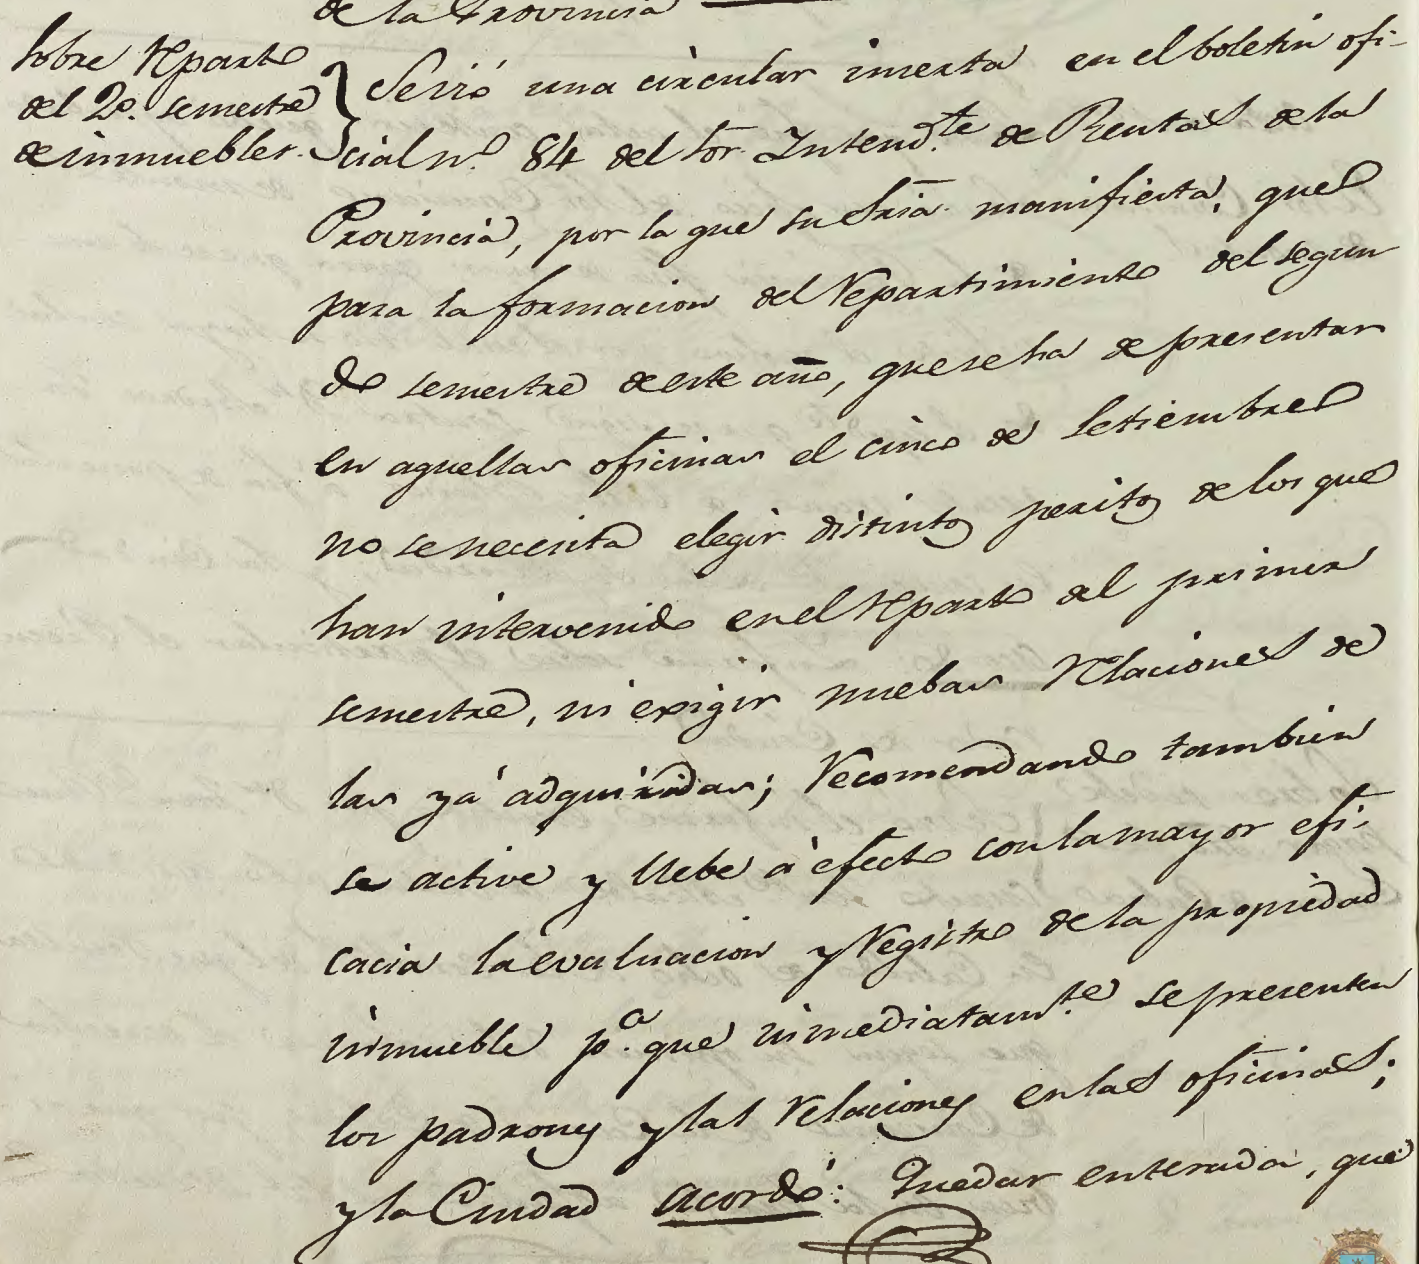 de la Provincia
Sobre reparto
del 2º. semestre
de inmuebles.
Se vió una circular inserta en el boletin ofi-
cial nº 84 del Sor. Intendte. de Rentas de la
Provincia, por la que su Sria. manifiesta, que
para la formacion del repartimiento del segun
do semestre de este año, que se ha de presentar
en aquellas oficinas el cinco de Setiembre
no se necesita elegir distintos peritos de los que
han intervenido en el reparto del primer
semestre, ni exigir nuebas relaciones de
las yá adquiridas; recomendando tambien
se active y llebe á efecto con la mayor efi-
cacia la evaluacion y registro de la propiedad
inmueble pa. que inmediatamte. se presenten
los padrones y las relaciones en las oficinas;
y la Ciudad acordó: Quedar enterada, que